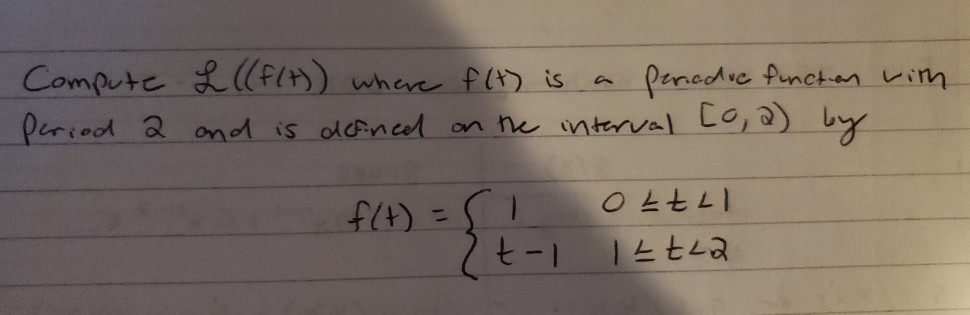 Compute ℒ((f(t)) where f(t) is a periodic function with
Period 2 and is defined on the interval [0, 2) by
f(t) = { 1 0 ≤ t < 1
t - 1 1 ≤ t < 2